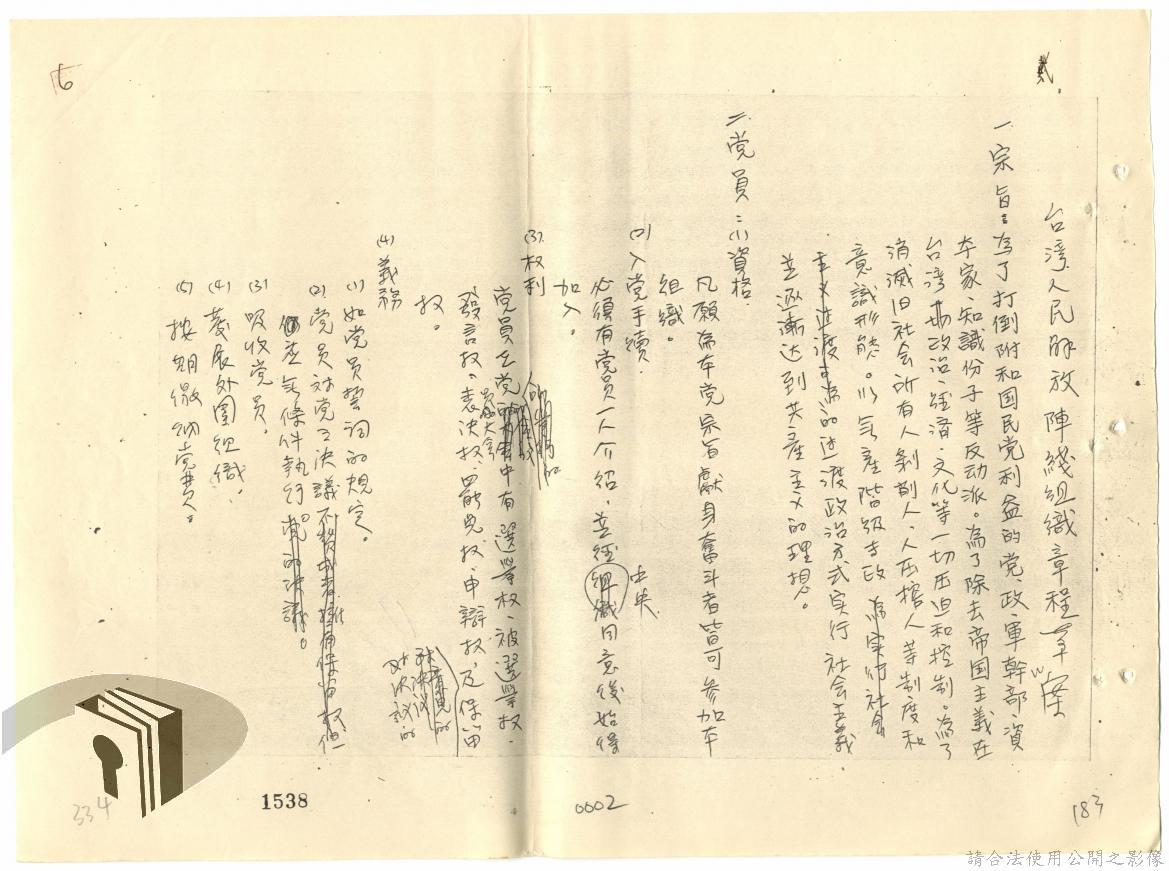 貳.
台湾人民解放陣綫組織章程草案
一.宗旨：為了打倒附和国民党利益的党、政、軍幹部、資
本家、知識份子等反动派。為了除去帝国主義在
台湾
政治、經済、文化等一切压迫和控制。為了
消滅旧社会所有人剝削人、人压榨人等制度和
意識形態。以無產階級专政
為实行社会
主义过渡
的过渡政治方式实行社会主義
並逐漸达到共產主义的理想。
二.党員：(1)資格.
凡願為本党宗旨獻身奮斗者皆可参加本
組織。
(2)入党手續.
必須有党員一人介绍，並經組織同意後始得
中央
加入。
(3).权利
党員在党
中有選举权、被選举权、
員大会
發言权、表决权、罷免权、申辯权，及保留
对决议的
权。
(4)義務
(1)如党員誓詞的規定。
(2)党員对党之决議
但
並無條件执行。
(3)吸收党員。
(4)發展外圍組織.
(5)按期缴纳党費。
6
334
1538
0002
183
請合法使用公開之影像